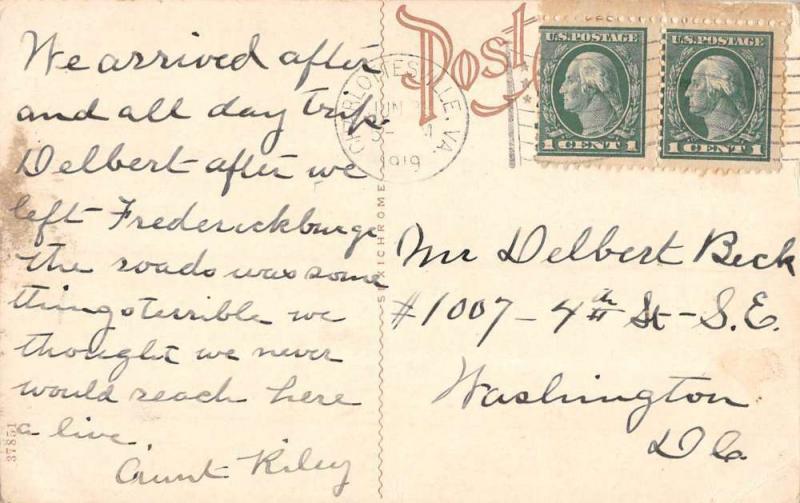 We arrived after
and all day trip.
Delbert after we
left Frederickburge
the roads was some
things terrible we
thought we never
would reach here
a live.
Aunt Riley
37851
SEXICHROME
Post
CHARLOTTESVILLE, VA.
JUN
1919
U.S. POSTAGE
1 CENT 1
U.S. POSTAGE
1 CENT 1
Mr Delbert Beck
#1007 - 4th St - S.E.
Washington
D C.